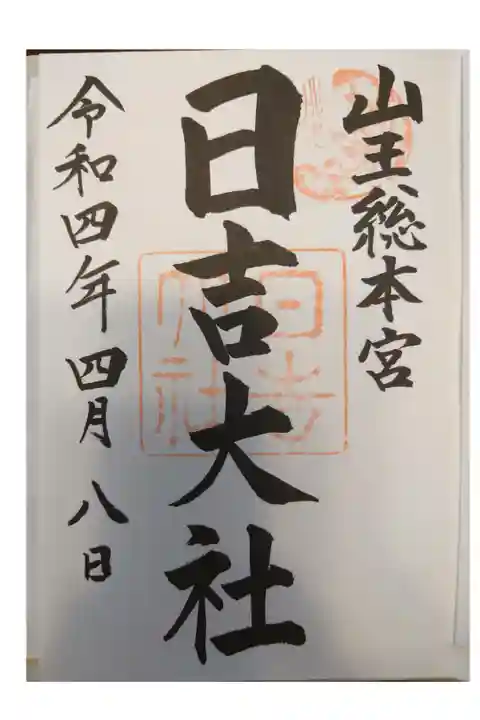 山王総本宮
日吉大社
日吉大社
令和四年四月八日